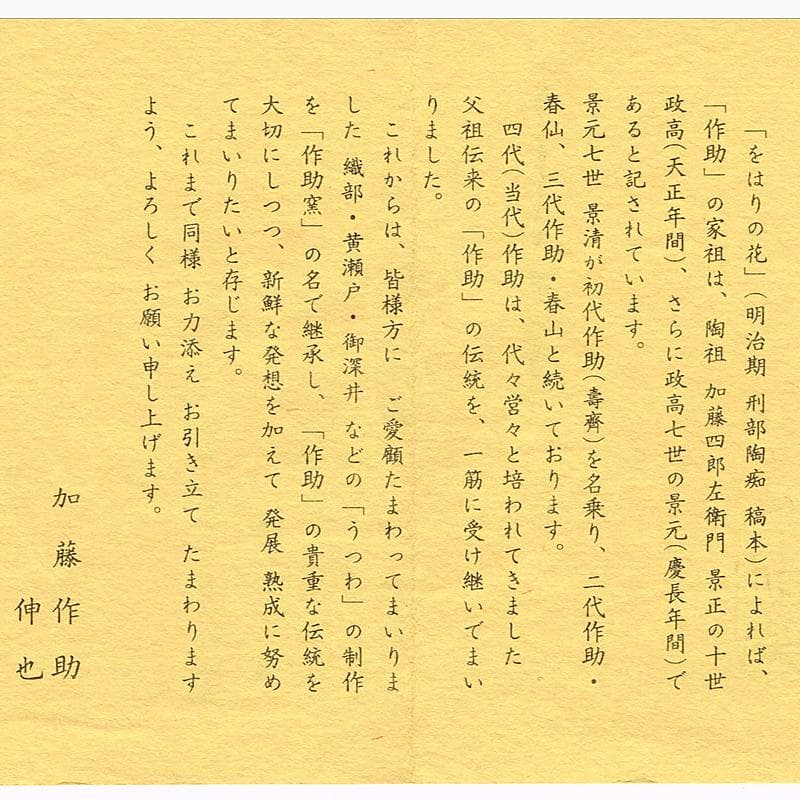 「をはりの花」(明治期 刑部陶痴 稿本)によれば、
「作助」の家祖は、陶祖 加藤四郎左衛門 景正の十世
政高(天正年間)、さらに政高七世の景元(慶長年間)で
あると記されています。
景元七世 景清が初代作助(壽齊)を名乗り、二代作助・
春仙、三代作助・春山と続いております。
四代(当代)作助は、代々営々と培われてきました
父祖伝来の「作助」の伝統を、一筋に受け継いでまい
りました。
これからは、皆様方に ご愛顧たまわってまいりま
した 織部・黄瀬戸・御深井 などの「うつわ」の制作
を「作助窯」の名で継承し、「作助」の貴重な伝統を
大切にしつつ、新鮮な発想を加えて 発展 熟成に努め
てまいりたいと存じます。
これまで同様 お力添え お引き立て たまわります
よう、よろしく お願い申し上げます。
加藤作助
伸也